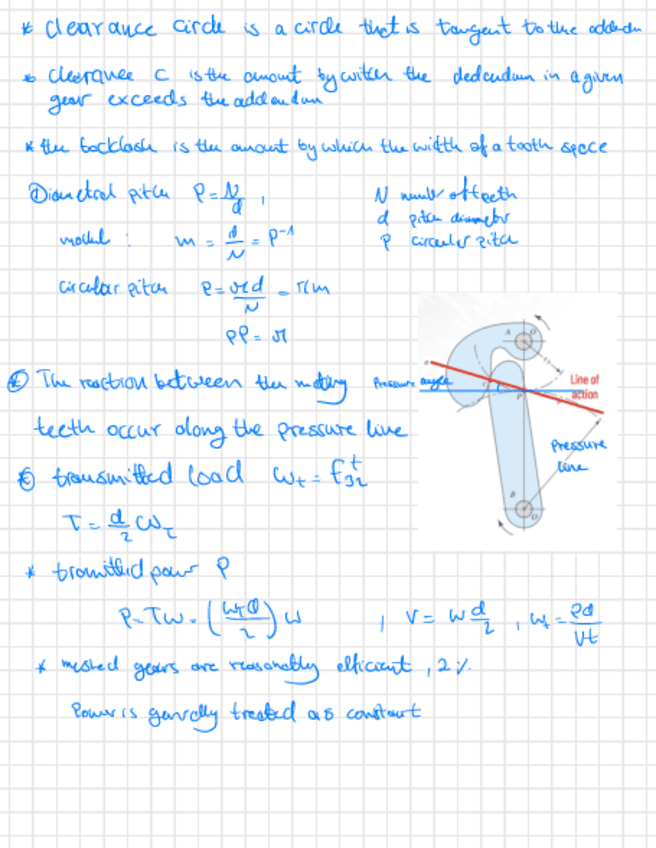 * Clearance circle is a circle that is tangent to the addendum
* clearance c is the amount by witch the dedendum in a given
gear exceeds the addendum
* the backlash is the amount by which the width of a tooth space
Diametral pitch P = N/d , N number of teeth
d pitch diameter
modul : m = d/N = P^-1 p circular pitch
circular pitch p = πd/N = πm
pP = π
A
O
a
Pressure angle
Line of
action
P
* The reaction between the mating
teeth occur along the pressure line
Pressure
line
* transmitted load Wt = F^t_32
B
O
T = d/2 Wt
* tromitted power P
P = Tω = (Wt d/2) ω , V = ω d/2 , Wt =
* meshed gears are reasonably efficient , 2%
Power is generally treated as constant